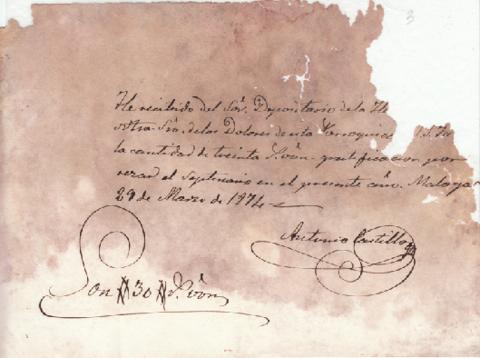 He recibido del Sor. Depositario de la H
ntra Sra. de los Dolores de esta Parroquia
la cantidad de treinta R. von. gratificacion por
rezar el Septenario en el presente año. Malaga
29 de Marzo de 1874
Antonio Castillo
Son # 30 # R. von
3